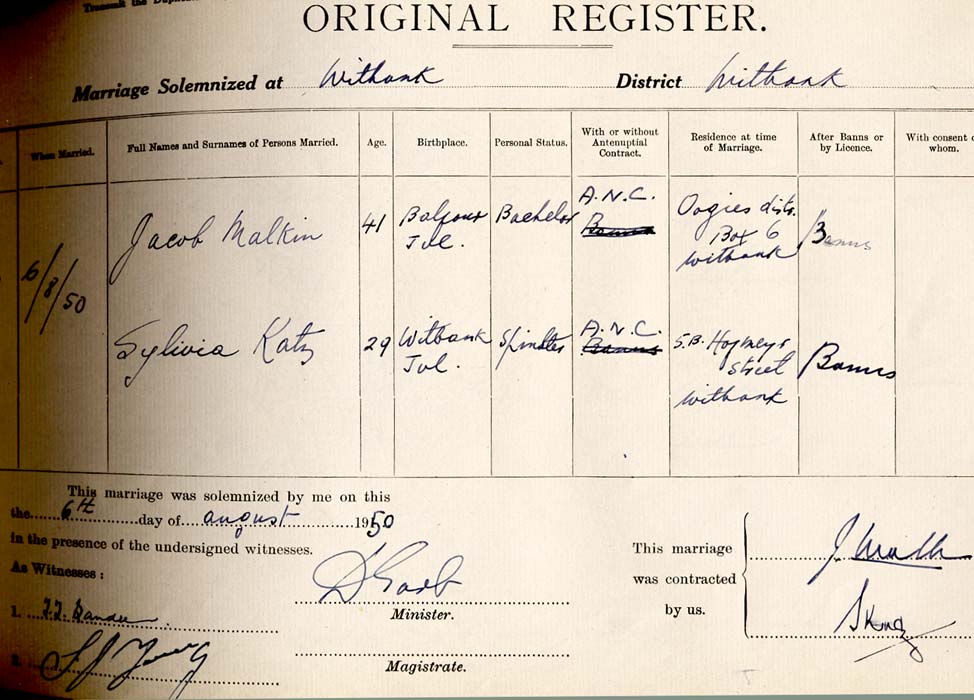 Transmit the
ORIGINAL REGISTER.
Marriage Solemnized at Witbank District Witbank
When Married.
Full Names and Surnames of Persons Married.
Age.
Birthplace.
Personal Status.
With or without
Antenuptial
Contract.
Residence at time
of Marriage.
After Banns or
by Licence.
With consent
whom.
6/8/50
Jacob Malkin
41
Balfour
Tvl.
Bachelor
A.N.C.
Banns
Oogies distr.
Box 6
Witbank
Banns
Sylivia Katz
29
Witbank
Tvl.
Spinster
A.N.C.
Banns
5.B. Hofmeyr
Street
Witbank
Banns
This marriage was solemnized by me on this
the 6th day of august 1950
in the presence of the undersigned witnesses.
As Witnesses :
1.
Minister.
Magistrate.
This marriage
was contracted
by us.